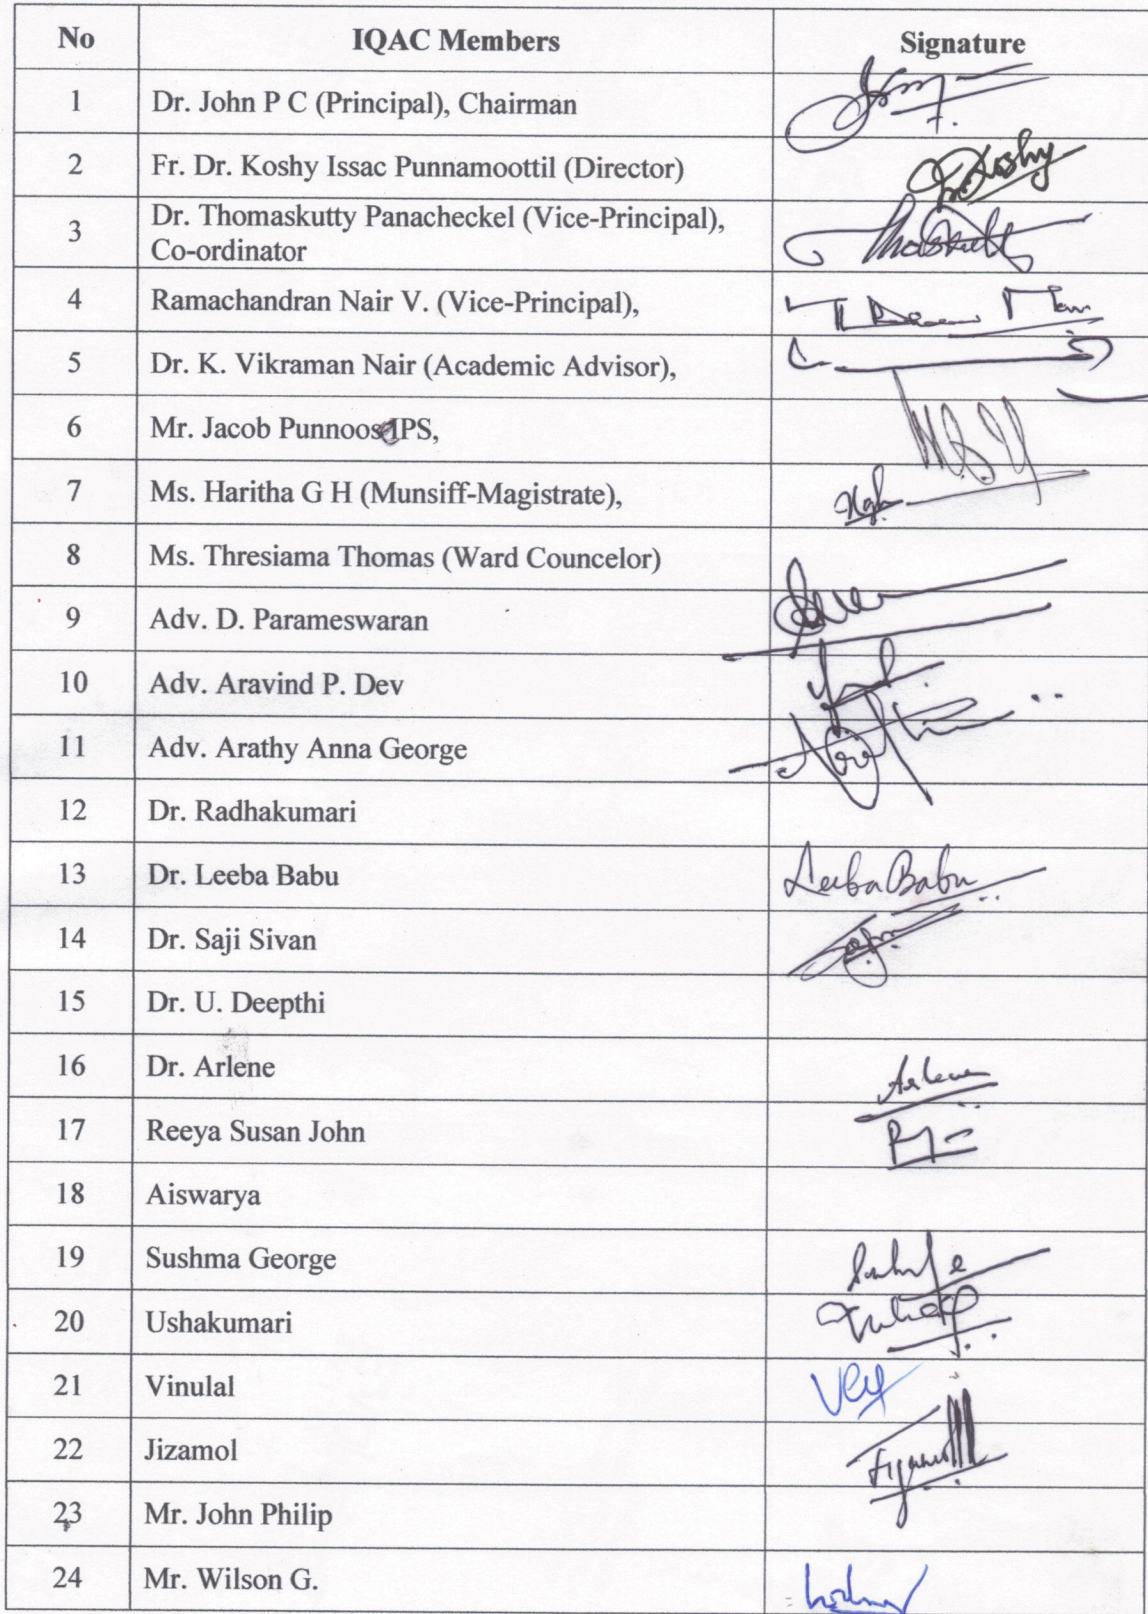 No IQAC Members Signature
1 Dr. John P C (Principal), Chairman
2 Fr. Dr. Koshy Issac Punnamoottil (Director) Fr. Koshy
3 Dr. Thomaskutty Panacheckel (Vice-Principal),
Co-ordinator
4 Ramachandran Nair V. (Vice-Principal),
5 Dr. K. Vikraman Nair (Academic Advisor),
6 Mr. Jacob Punnoose IPS,
7 Ms. Haritha G H (Munsiff-Magistrate),
8 Ms. Thresiama Thomas (Ward Councelor)
9 Adv. D. Parameswaran
10 Adv. Aravind P. Dev
11 Adv. Arathy Anna George
12 Dr. Radhakumari
13 Dr. Leeba Babu Leeba Babu
14 Dr. Saji Sivan
15 Dr. U. Deepthi
16 Dr. Arlene Arlene
17 Reeya Susan John
18 Aiswarya
19 Sushma George
20 Ushakumari
21 Vinulal
22 Jizamol
23 Mr. John Philip
24 Mr. Wilson G.